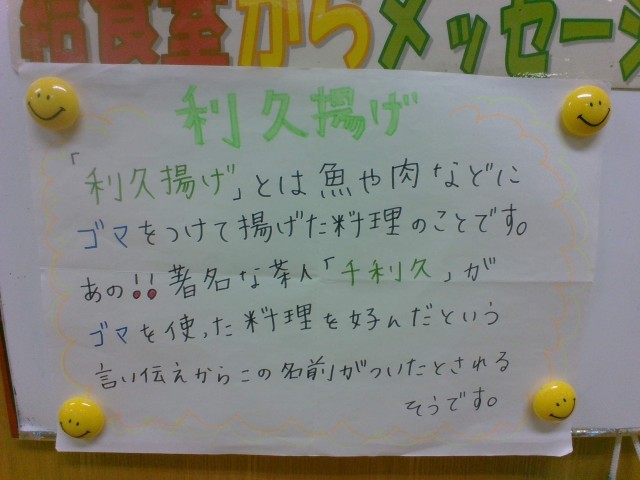 給食室からメッセージ
利久揚げ
「利久揚げ」とは魚や肉などに
ゴマをつけて揚げた料理のことです。
あの!!著名な茶人「千利久」が
ゴマを使った料理を好んだという
言い伝えからこの名前がついたとされる
そうです。